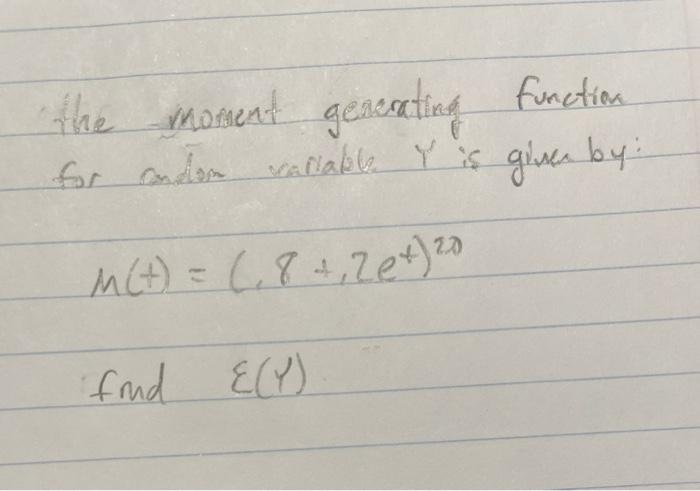 the moment generating function
for random variable Y is given by:
M(t) = (.8 + .2e^t)^20
find E(Y)